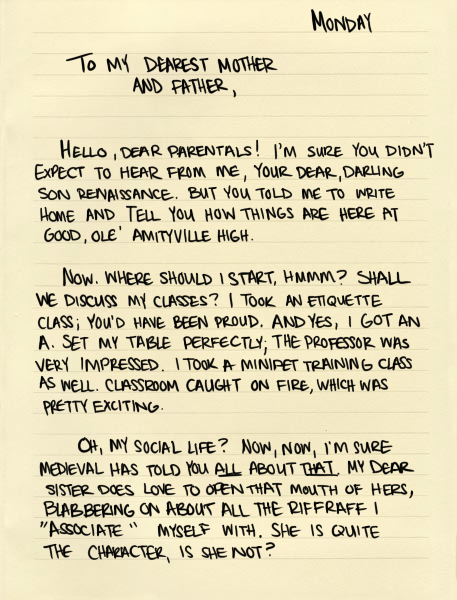 MONDAY
TO MY DEAREST MOTHER
AND FATHER,
HELLO, DEAR PARENTALS! I'M SURE YOU DIDN'T
EXPECT TO HEAR FROM ME, YOUR DEAR, DARLING
SON RENAISSANCE. BUT YOU TOLD ME TO WRITE
HOME AND TELL YOU HOW THINGS ARE HERE AT
GOOD, OLE' AMITYVILLE HIGH.
NOW. WHERE SHOULD I START, HMMM? SHALL
WE DISCUSS MY CLASSES? I TOOK AN ETIQUETTE
CLASS; YOU'D HAVE BEEN PROUD. AND YES, I GOT AN
A. SET MY TABLE PERFECTLY; THE PROFESSOR WAS
VERY IMPRESSED. I TOOK A MINIPET TRAINING CLASS
AS WELL. CLASSROOM CAUGHT ON FIRE, WHICH WAS
PRETTY EXCITING.
OH, MY SOCIAL LIFE? NOW, NOW, I'M SURE
MEDIEVAL HAS TOLD YOU ALL ABOUT THAT. MY DEAR
SISTER DOES LOVE TO OPEN THAT MOUTH OF HERS,
BLABBERING ON ABOUT ALL THE RIFFRAFF I
"ASSOCIATE" MYSELF WITH. SHE IS QUITE
THE CHARACTER, IS SHE NOT?